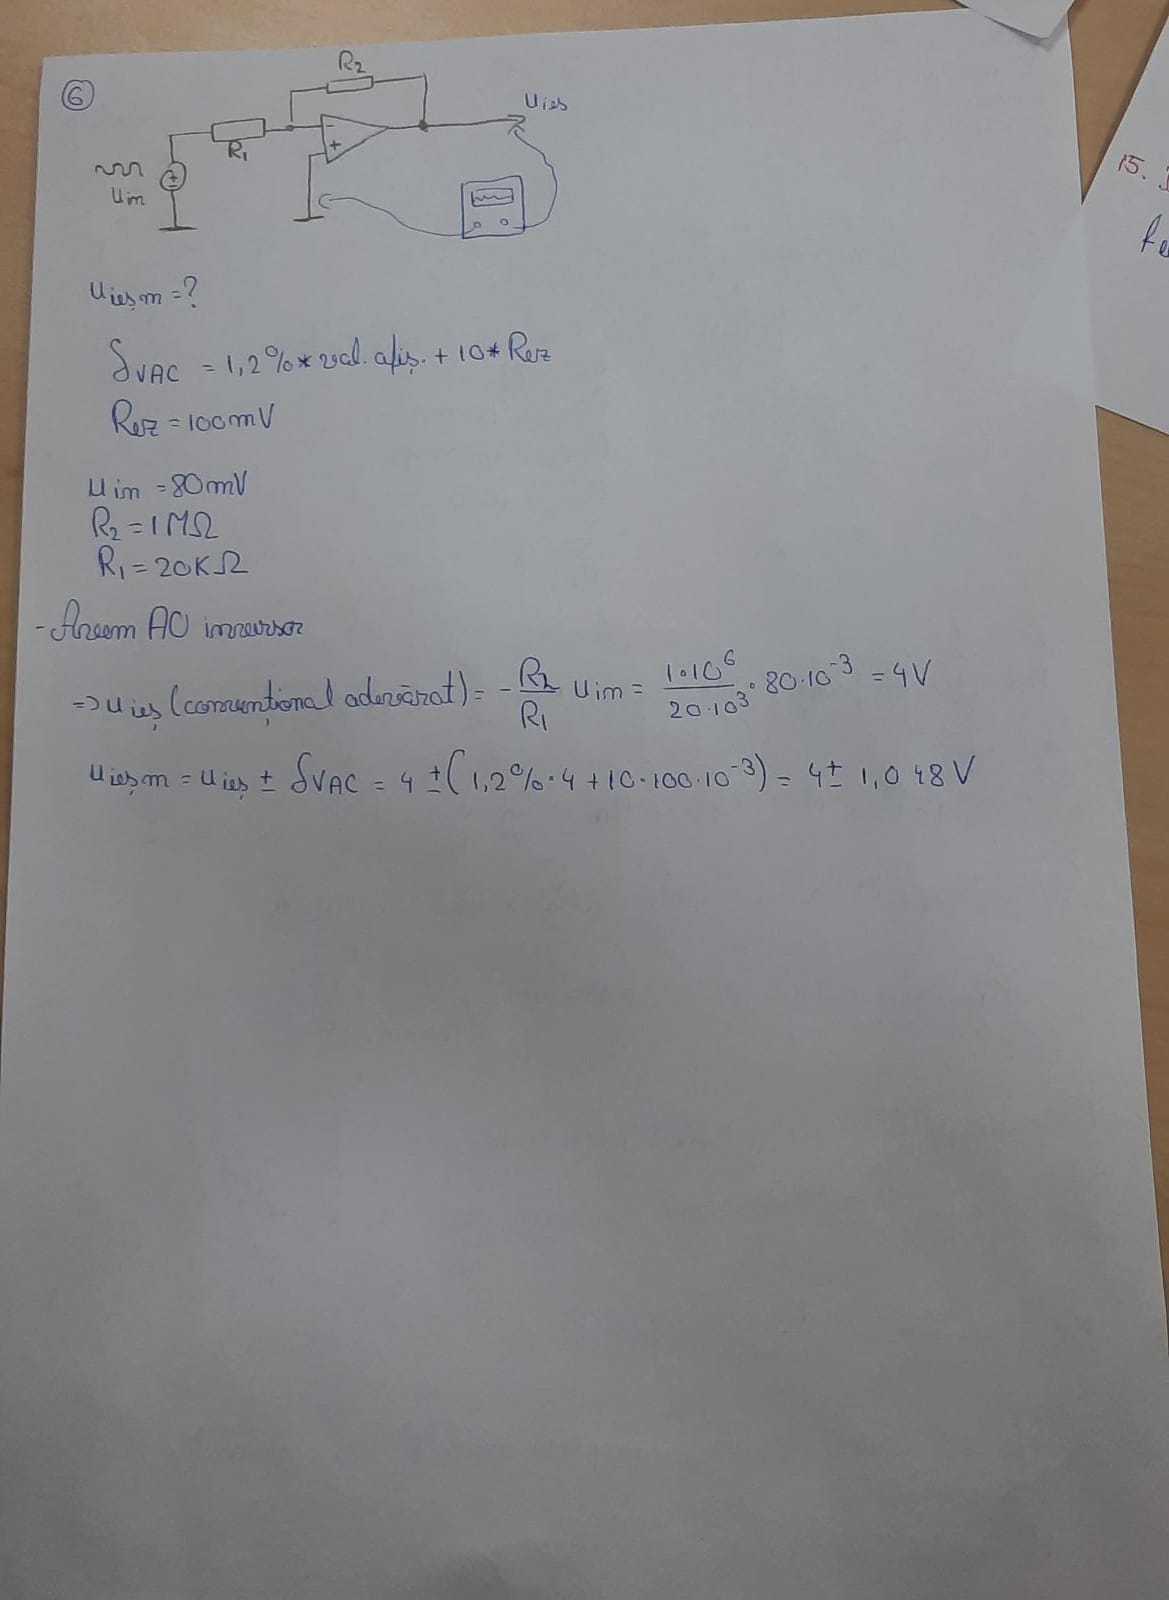 6
R2
Uies
R1
Uin
+
-
+
Uieșm =?
δVAC = 1,2%* val. afiș. + 10* Rez
Rez = 100mV
Uin = 80mV
R2 = 1MΩ
R1 = 20KΩ
- Avem AO inversor
=> Uieș (convențional adevărat) = - R2/R1 Uin = 1·10^6/20·10^3 · 80·10^-3 = 4V
Uieșm = Uieș ± δVAC = 4 ± (1,2%·4 + 10·100·10^-3) = 4 ± 1,048V
15.